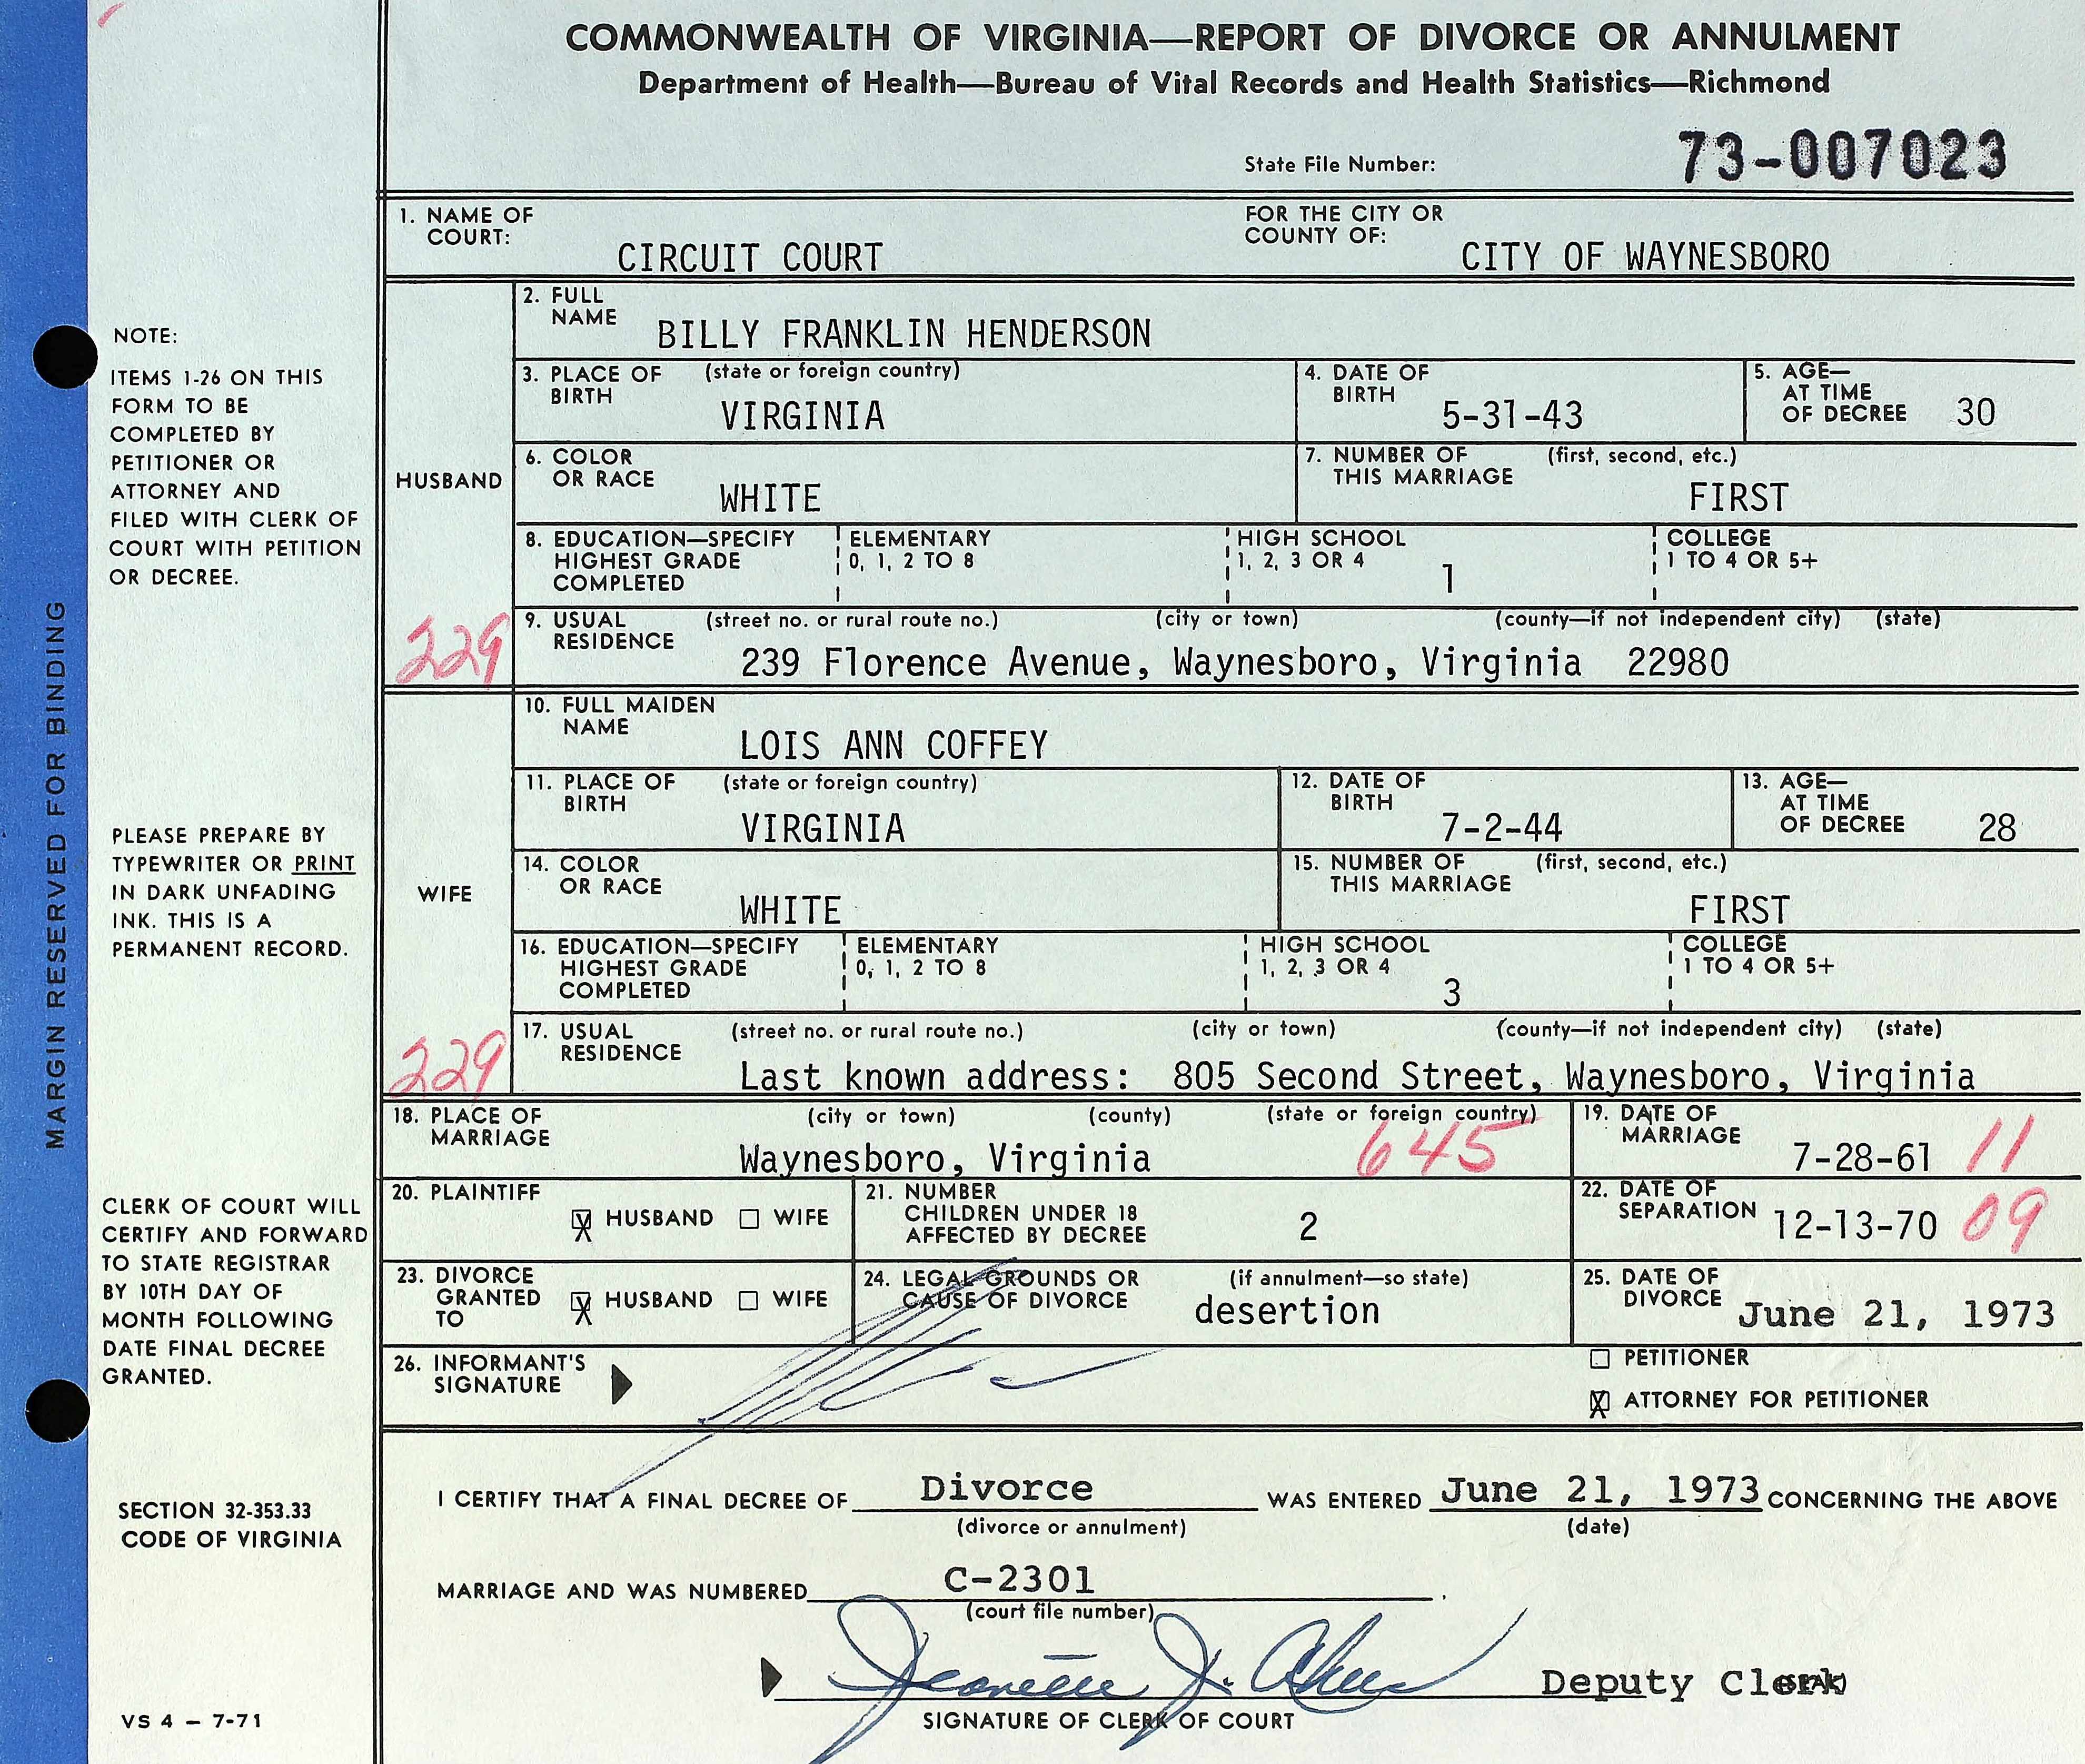 COMMONWEALTH OF VIRGINIA—REPORT OF DIVORCE OR ANNULMENT
Department of Health—Bureau of Vital Records and Health Statistics—Richmond
State File Number: 73-007023
1. NAME OF COURT: CIRCUIT COURT FOR THE CITY OR COUNTY OF: CITY OF WAYNESBORO
HUSBAND
2. FULL NAME BILLY FRANKLIN HENDERSON
3. PLACE OF BIRTH (state or foreign country) VIRGINIA 4. DATE OF BIRTH 5-31-43 5. AGE— AT TIME OF DECREE 30
6. COLOR OR RACE WHITE 7. NUMBER OF THIS MARRIAGE (first, second, etc.) FIRST
8. EDUCATION—SPECIFY HIGHEST GRADE COMPLETED ELEMENTARY 0, 1, 2 TO 8 HIGH SCHOOL 1, 2, 3 OR 4 1 COLLEGE 1 TO 4 OR 5+
229
9. USUAL RESIDENCE (street no. or rural route no.) (city or town) (county—if not independent city) (state)
239 Florence Avenue, Waynesboro, Virginia 22980
WIFE
10. FULL MAIDEN NAME LOIS ANN COFFEY
11. PLACE OF BIRTH (state or foreign country) VIRGINIA 12. DATE OF BIRTH 7-2-44 13. AGE— AT TIME OF DECREE 28
14. COLOR OR RACE WHITE 15. NUMBER OF THIS MARRIAGE (first, second, etc.) FIRST
16. EDUCATION—SPECIFY HIGHEST GRADE COMPLETED ELEMENTARY 0, 1, 2 TO 8 HIGH SCHOOL 1, 2, 3 OR 4 3 COLLEGE 1 TO 4 OR 5+
229
17. USUAL RESIDENCE (street no. or rural route no.) (city or town) (county—if not independent city) (state)
Last known address: 805 Second Street, Waynesboro, Virginia
18. PLACE OF MARRIAGE (city or town) (county) (state or foreign country) Waynesboro, Virginia 645 19. DATE OF MARRIAGE 7-28-61 11
20. PLAINTIFF X HUSBAND WIFE 21. NUMBER CHILDREN UNDER 18 AFFECTED BY DECREE 2 22. DATE OF SEPARATION 12-13-70 09
23. DIVORCE GRANTED TO X HUSBAND WIFE 24. LEGAL GROUNDS OR CAUSE OF DIVORCE (if annulment—so state) desertion 25. DATE OF DIVORCE June 21, 1973
26. INFORMANT'S SIGNATURE
PETITIONER
X ATTORNEY FOR PETITIONER
I CERTIFY THAT A FINAL DECREE OF Divorce WAS ENTERED June 21, 1973 CONCERNING THE ABOVE
(divorce or annulment) (date)
MARRIAGE AND WAS NUMBERED C-2301 .
(court file number)
Deputy Clerk
SIGNATURE OF CLERK OF COURT
MARGIN RESERVED FOR BINDING
NOTE:
ITEMS 1-26 ON THIS
FORM TO BE
COMPLETED BY
PETITIONER OR
ATTORNEY AND
FILED WITH CLERK OF
COURT WITH PETITION
OR DECREE.
PLEASE PREPARE BY
TYPEWRITER OR PRINT
IN DARK UNFADING
INK. THIS IS A
PERMANENT RECORD.
CLERK OF COURT WILL
CERTIFY AND FORWARD
TO STATE REGISTRAR
BY 10TH DAY OF
MONTH FOLLOWING
DATE FINAL DECREE
GRANTED.
SECTION 32-353.33
CODE OF VIRGINIA
VS 4 – 7-71